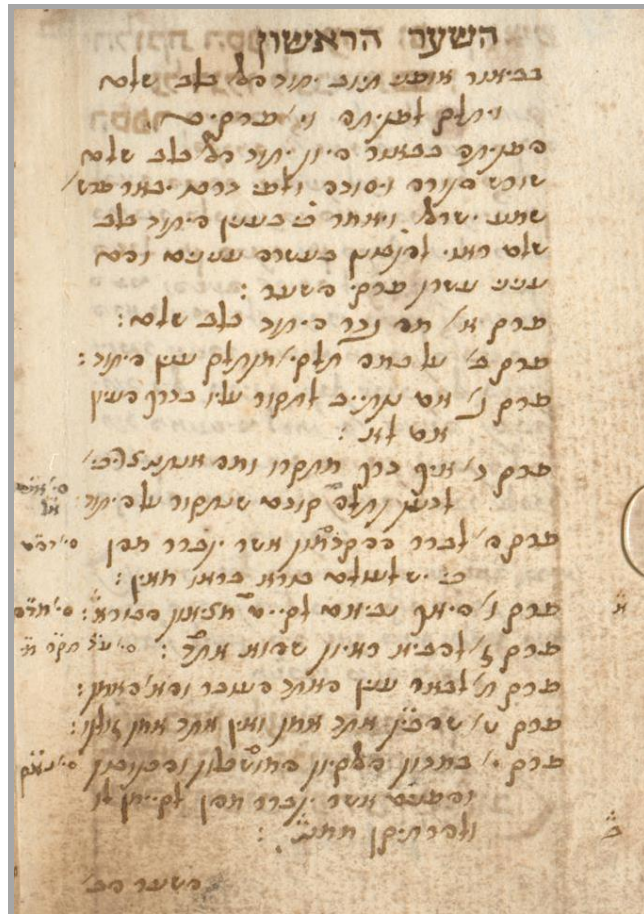 השער הראשון
בביאור אופני חיוב יחוד האל בלב שלם
ויחלק לפתיחה וי׳ פרקים
הפתיחה בבאור היות יחוד האל בלב שלם
שורש התורה ויסודה
שמע ישראל ויאמר כי בענין היחוד בלב
שלם ראוי בעשרה ענינים והם
עניני עשרת פרקי השער :
פרק א׳ מה גדר היחוד בלב שלם :
פרק ב׳ על כמה חלקי׳ יתחלק ענין היחוד :
פרק ג׳ אם נתחייב לחקור עליו בדרך העיון
אם לא :
פרק ד׳ איך דרך חקירתו ומה
לדעת קודם שנחקור על היחוד
פרק ה׳ לברר ההקדמות אשר יתברר מהן
כי יש לעולם בורא בראו מאין :
פרק ו׳ היאך נביאם לקיים מציאות הבורא :
פרק ז׳ להביא ראיות שהוא אחד :
פרק ח׳ לבאר ענין האחד העובר והאחד האמת :
פרק ט׳ שהבורא אחד אמת ואין אחד אמת זולתו :
פרק י׳ במדות האלהיות המושכלות והכתובות
והפנים אשר יתברר מהן לקיימן לו
ולהרחיקן ממנו :
השער הב׳